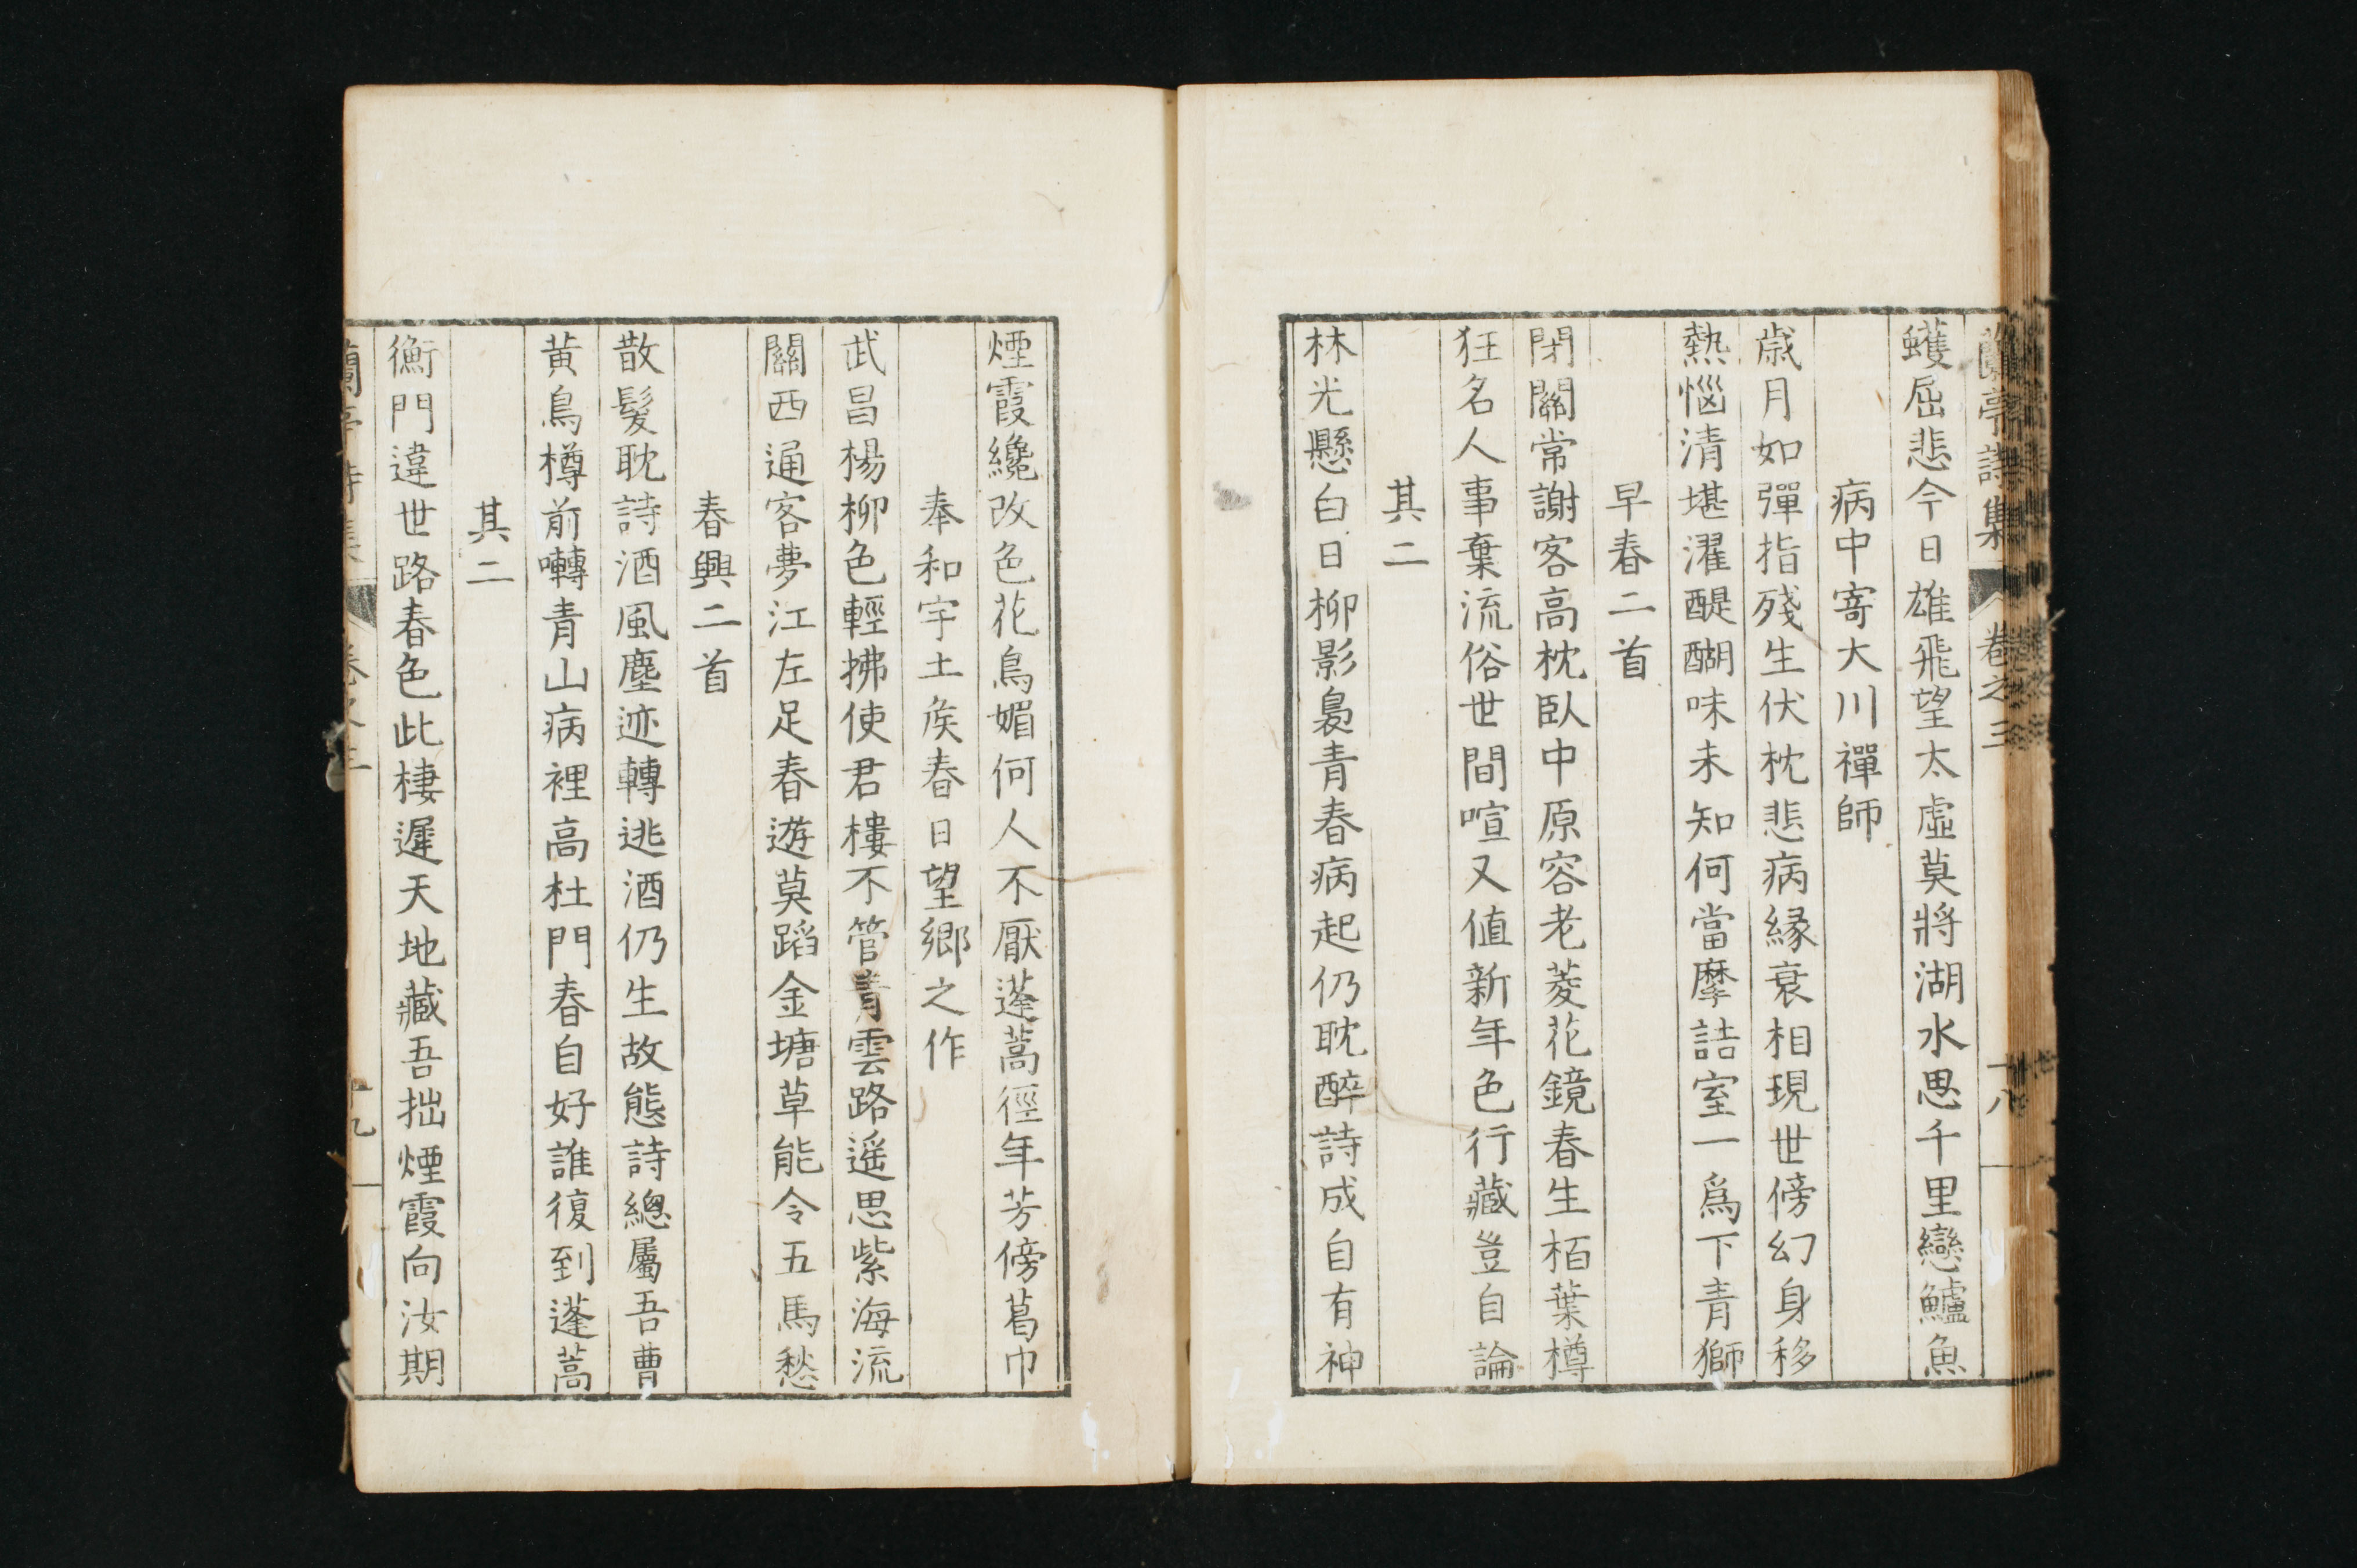 蘭亭詩集 卷之三 十八
蠖屈悲今日雄飛望太虛莫將湖水思千里戀鱸魚
病中寄大川禪師
歳月如彈指殘生伏枕悲病緣衰相現世傍幻身移
熱惱清堪濯醍醐味未知何當摩詰室一爲下青獅
早春二首
閉關常謝客高枕臥中原容老菱花鏡春生栢葉樽
狂名人事棄流俗世間喧又值新年色行藏豈自論
其二
林光懸白日柳影裊青春病起仍耽醉詩成自有神
煙霞纔改色花鳥媚何人不厭蓬蒿徑年芳傍葛巾
奉和宇土矦春日望鄉之作
武昌楊柳色輕拂使君樓不管青雲路遥思紫海流
關西通客夢江左足春遊莫蹈金塘草能令五馬愁
春興二首
散髮耽詩酒風塵迹轉逃酒仍生故態詩總屬吾曹
黃鳥樽前囀青山病裡高杜門春自好誰復到蓬蒿
其二
衡門違世路春色此棲遲天地藏吾拙煙霞向汝期
蘭亭詩集 卷之三 十九